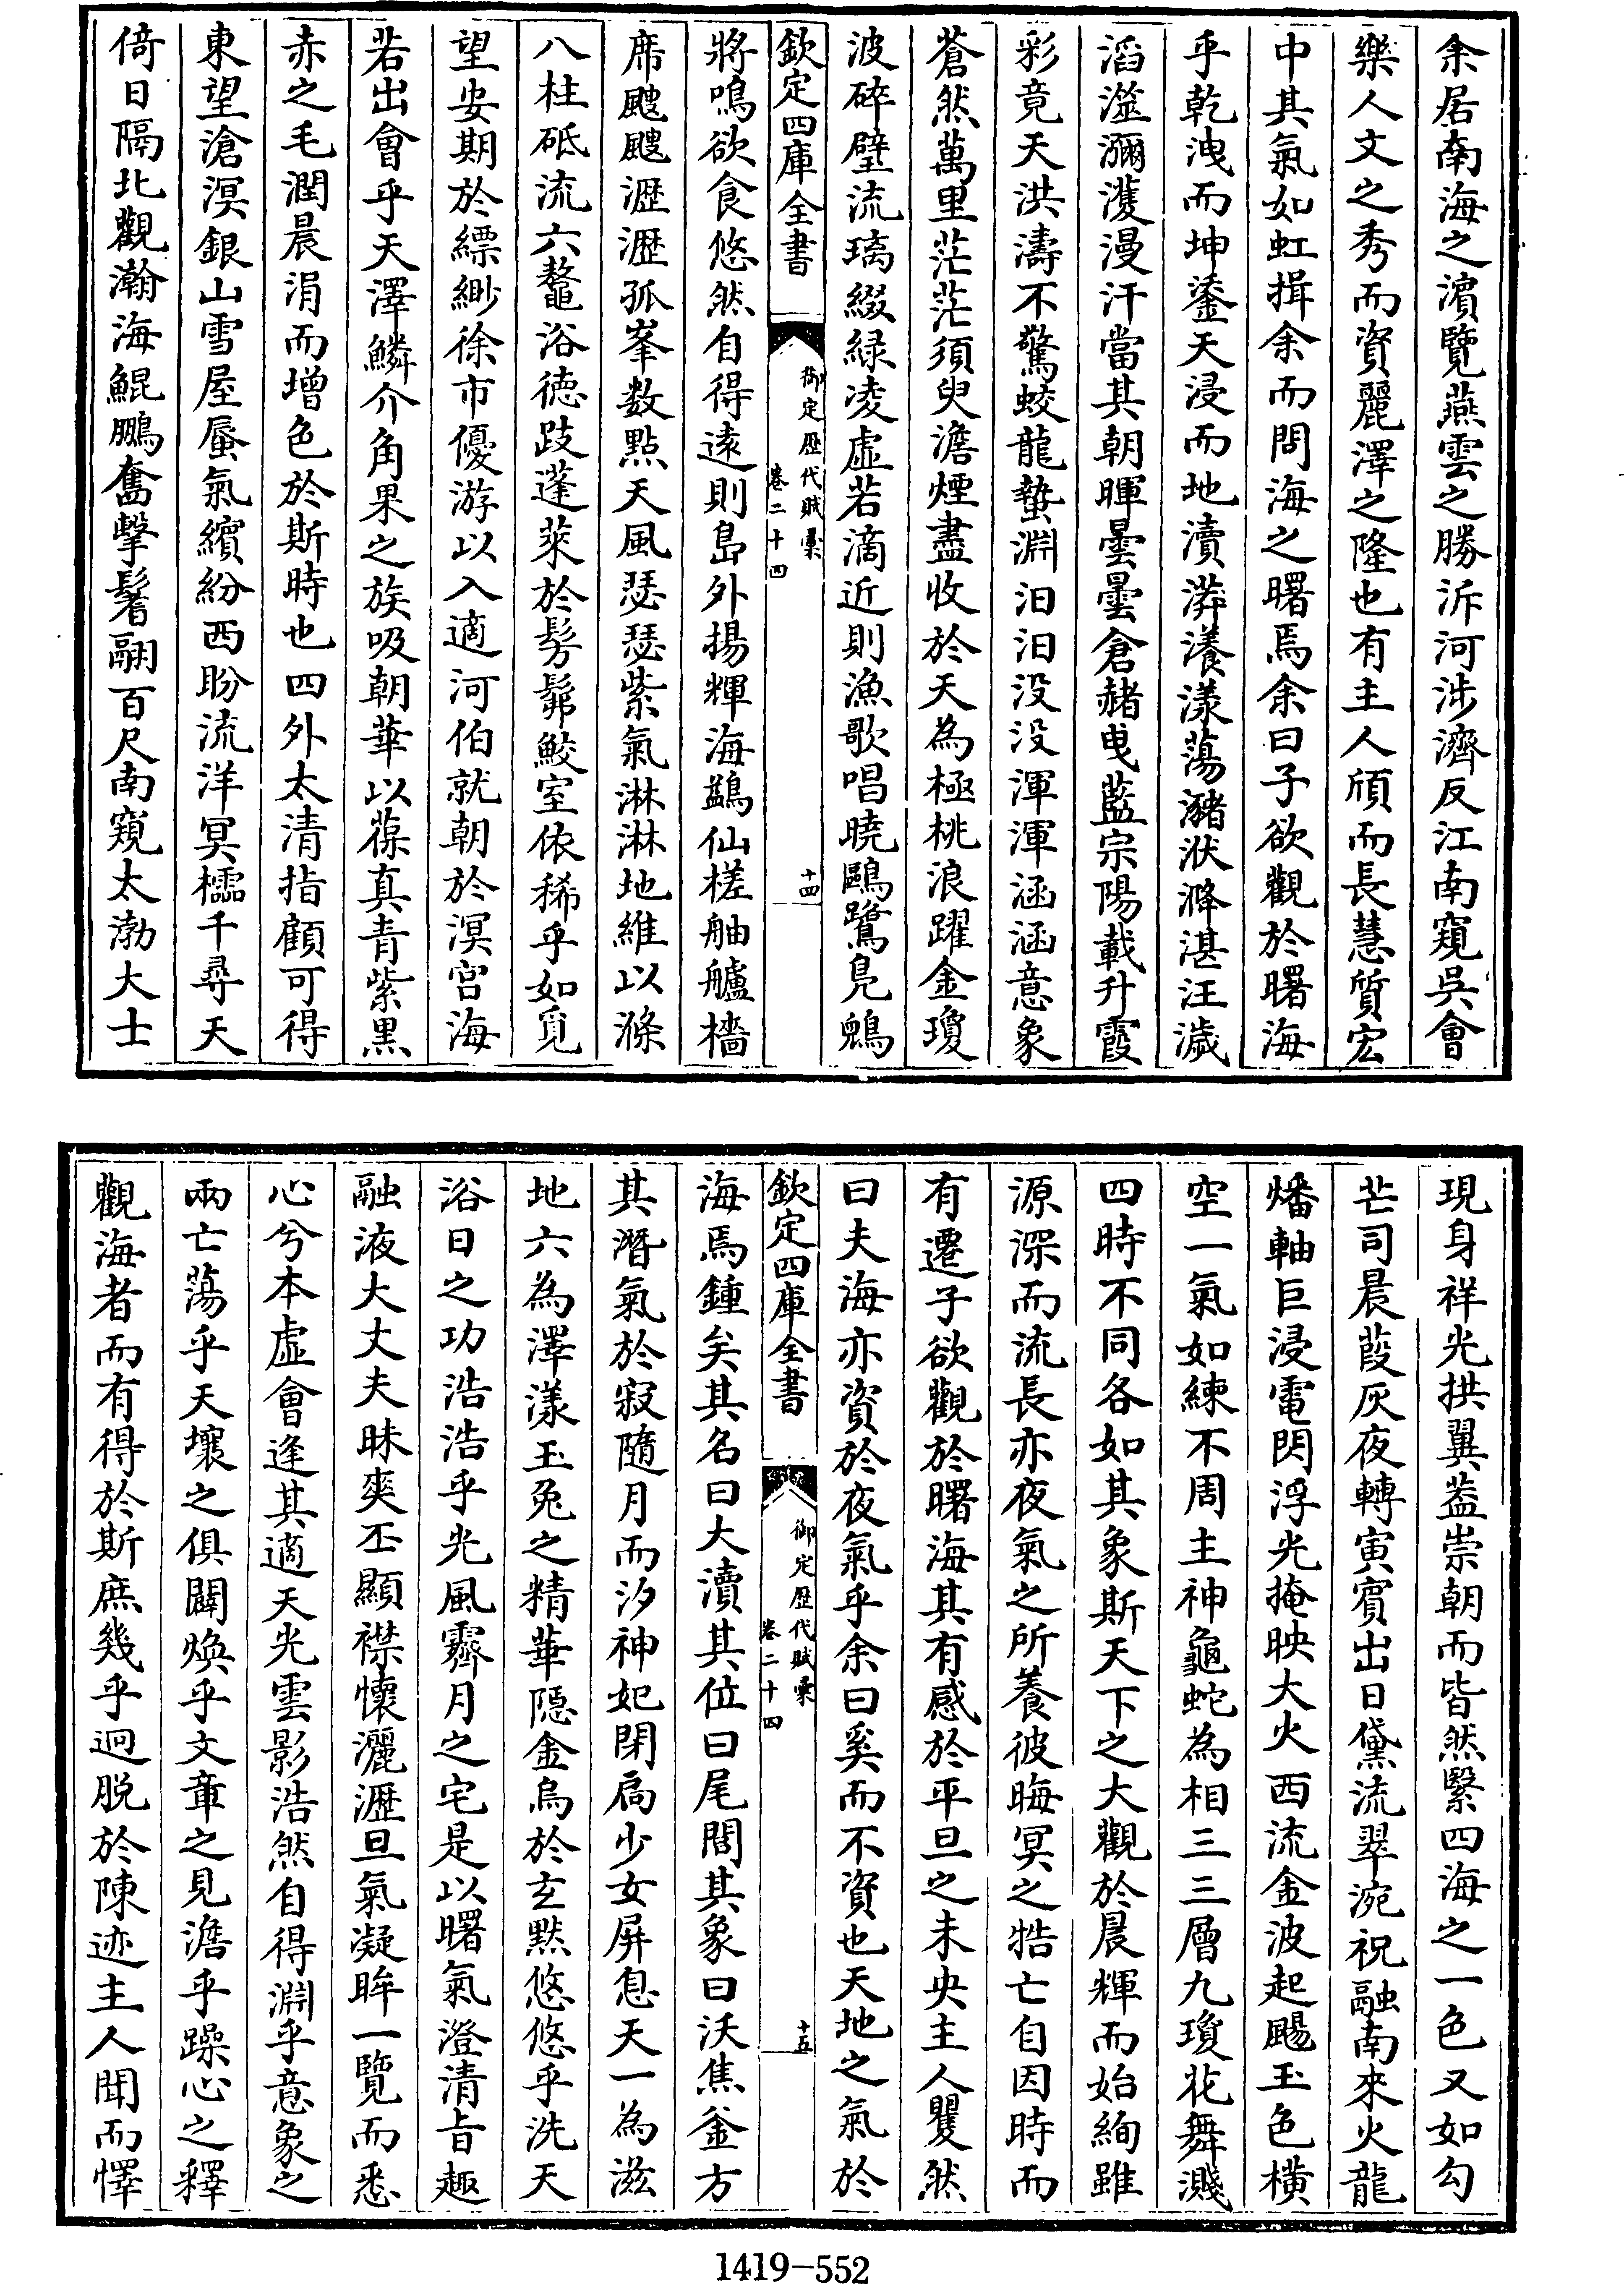 余居南海之濵覽燕雲之勝泝河涉濟反江南窺吳會
樂人文之秀而資麗澤之隆也有主人頎而長慧質宏
中其氣如虹揖余而問海之曙焉余曰子欲觀於曙海
乎乾洩而坤鍌天浸而地瀆漭瀁漾蕩瀦洑洚湛汪濊
滔澨瀰濩漫汗當其朝暉曇曇倉赭曵藍宗陽載升霞
彩竟天洪濤不驚蛟龍蟄淵汨汨没没渾渾涵涵意象
蒼然萬里茫茫須臾澹煙盡收於天為極桃浪躍金瓊
波碎璧流璃綴緑凌虛若滴近則漁歌唱曉鷗鷺鳧鷀
欽定四庫全書
御定歷代賦彚
卷二十四
十四
將鳴欲食悠然自得逺則島外揚輝海鷀仙槎舳艫檣
席颼颼瀝瀝孤峯數點天風瑟瑟紫氣淋淋地維以滌
八柱砥流六鼇浴徳跂蓬萊於髣髴鮫室依稀乎如覓
望安期於縹緲徐市優游以入適河伯就朝於溟宫海
若出會乎天澤鱗介角果之族吸朝華以葆真青紫黑
赤之毛潤晨涓而增色於斯時也四外太清指顧可得
東望滄溟銀山雪屋蜃氣繽紛西盼流洋冥櫺千尋天
倚日隔北觀瀚海鯤鵬奮擊鬐翮百尺南窺太渤大士
現身祥光拱翼葢崇朝而皆然緊四海之一色又如勾
芒司晨葭灰夜轉寅賓出日黛流翠涴祝融南來火龍
燔軸巨浸電閃浮光掩映大火西流金波起颺玉色横
空一氣如練不周主神龜蛇為相三三層九瓊花舞濺
四時不同各如其象斯天下之大觀於晨輝而始絢雖
源深而流長亦夜氣之所養彼晦冥之牿亡自因時而
有遷子欲觀於曙海其有感於平旦之未央主人矍然
曰夫海亦資於夜氣乎余曰奚而不資也天地之氣於
欽定四庫全書
御定歷代賦彚
卷二十四
十五
海焉鍾矣其名曰大瀆其位曰尾閭其象曰沃焦釡方
其潛氣於寂隨月而汐神妃閉扃少女屏息天一為滋
地六為澤漾玉兔之精華隠金烏於玄黙悠悠乎洗天
浴日之功浩浩乎光風霽月之宅是以曙氣澄清旨趣
融液大丈夫昧爽丕顯襟懷灑瀝旦氣凝眸一覽而悉
心兮本虛會逢其適天光雲影浩然自得淵乎意象之
兩亡蕩乎天壤之俱闢煥乎文章之見澹乎躁心之釋
觀海者而有得於斯庶幾乎迥脱於陳迹主人聞而懌
1419-552